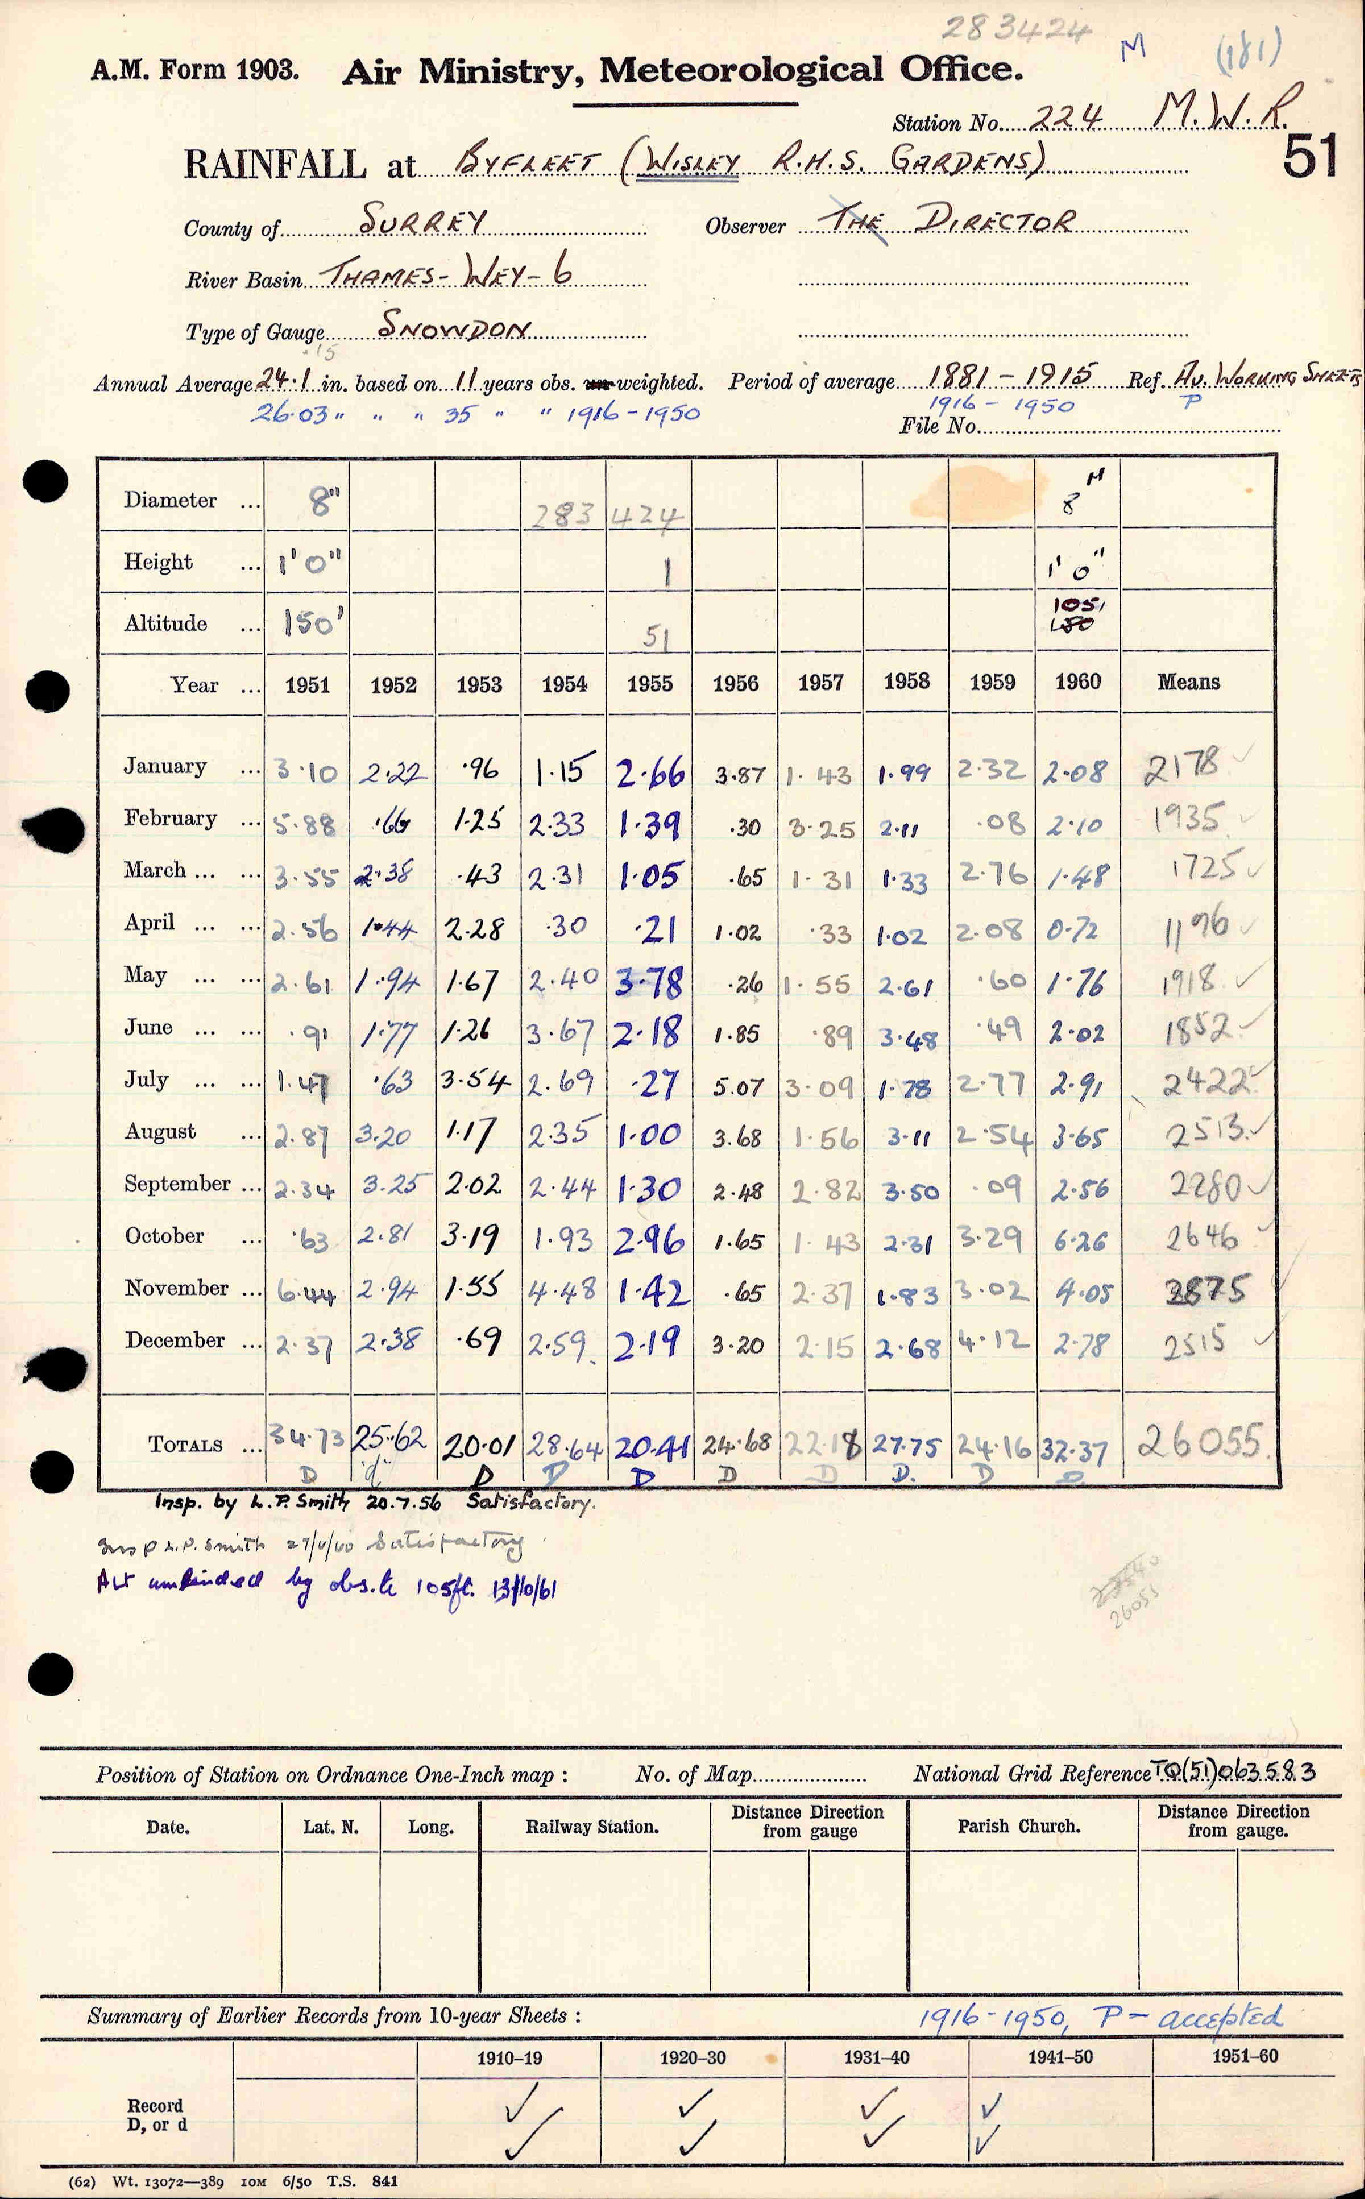 283424
M (181)
A.M. Form 1903. Air Ministry, Meteorological Office.
Station No. 224 M.W.R.
51
RAINFALL at BYFLEET (WISLEY R.H.S. GARDENS)
County of SURREY Observer THE DIRECTOR
River Basin THAMES-WEY-6
Type of Gauge SNOWDON
.15
Annual Average 24.1 in. based on 11 years obs. weighted. Period of average 1881-1915 Ref. AV. WORKING SHEETS
26.03 " " " 35 " " 1916-1950 1916-1950 P
File No.
Diameter ... 8" 283 424 8"
Height ... 1'0" 1 1'0"
Altitude ... 150' 51 105, 150
Year ... 1951 1952 1953 1954 1955 1956 1957 1958 1959 1960 Means
January ... 3.10 2.22 .96 1.15 2.66 3.87 1.43 1.99 2.32 2.08 2178 ✓
February ... 5.88 .66 1.25 2.33 1.39 .30 3.25 2.11 .08 2.10 1935 ✓
March ... ... 3.55 2.38 .43 2.31 1.05 .65 1.31 1.33 2.76 1.48 1725 ✓
April ... ... 2.56 1.44 2.28 .30 .21 1.02 .33 1.02 2.08 0.72 1196 ✓
May ... ... 2.61 1.94 1.67 2.40 3.78 .26 1.55 2.61 .60 1.76 1918 ✓
June ... ... .91 1.77 1.26 3.67 2.18 1.85 .89 3.48 .49 2.02 1852 ✓
July ... ... 1.47 .63 3.54 2.69 .27 5.07 3.09 1.78 2.77 2.91 2422 ✓
August ... 2.87 3.20 1.17 2.35 1.00 3.68 1.56 3.11 2.54 3.65 2513 ✓
September ... 2.34 3.25 2.02 2.44 1.30 2.48 2.82 3.50 .09 2.56 2280 ✓
October ... .63 2.81 3.19 1.93 2.96 1.65 1.43 2.31 3.29 6.26 2646 ✓
November ... 6.44 2.94 1.55 4.48 1.42 .65 2.37 1.83 3.02 4.05 2875 ✓
December ... 2.37 2.38 .69 2.59 2.19 3.20 2.15 2.68 4.12 2.78 2515 ✓
TOTALS ... 34.73 25.62 20.01 28.64 20.41 24.68 22.18 27.75 24.16 32.37 26055
D "d" D D D D D D. D D
Insp. by L.P. Smith 20.7.56 Satisfactory.
Insp L.P. Smith Satisfactory
Alt amended by obs. to 105ft. 13/10/61
26055
Position of Station on Ordnance One-Inch map : No. of Map National Grid Reference TQ(51)063583
Date. Lat. N. Long. Railway Station. Distance Direction from gauge Parish Church. Distance Direction from gauge.
Summary of Earlier Records from 10-year Sheets : 1916-1950, P- accepted
1910–19 1920–30 1931–40 1941–50 1951–60
Record ✓ ✓ ✓ ✓
D, or d ✓ ✓ ✓ ✓
(62) Wt. 13072—389 10M 6/50 T.S. 841